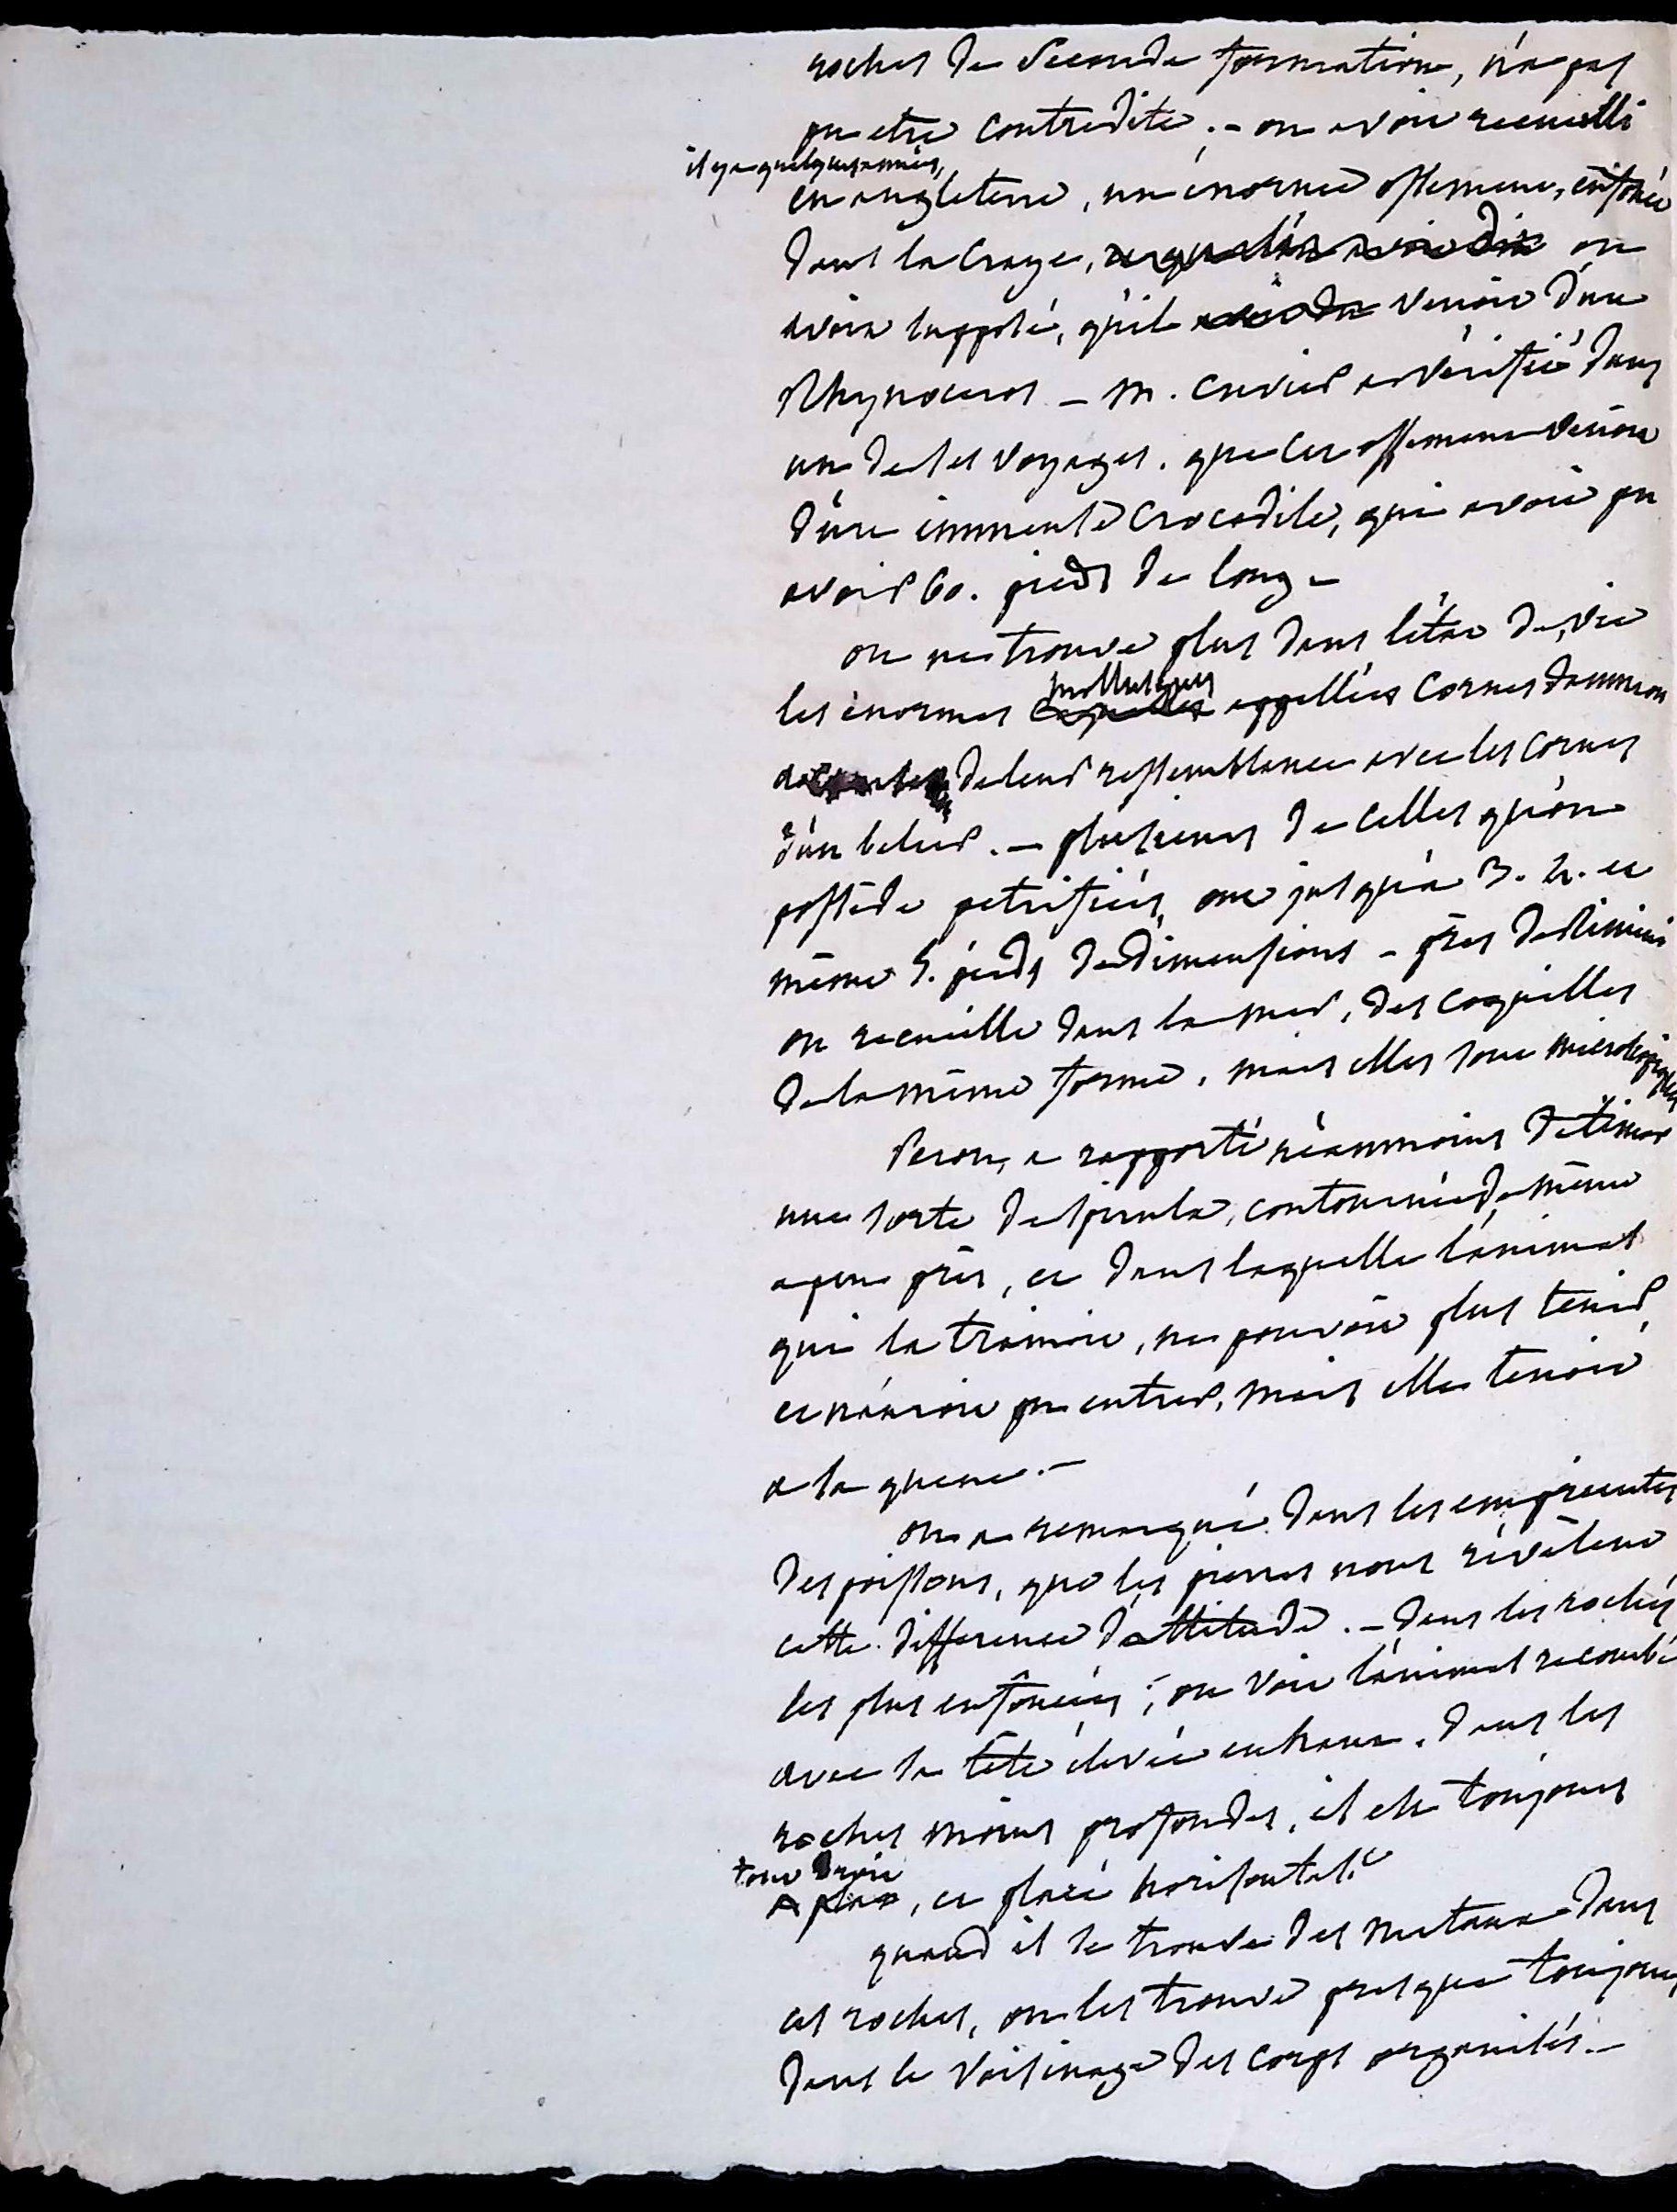 roches de seconde formation, n'a pas
pu etre contredite. – on avoit recueilli
il y a quelques années,
en angleterre, un énorme ossement, enfoncé
dans la craye, on
avoit supposé, qu'il venoit d'un
Rhynoceros – M. Cuvier a vérifié dans
un de ses voyages. que ces ossemens venoient
d'un immense Crocodile, qui avoit pu
avoir 60. pieds de long –
on ne trouve plus dans l'état de vie
mollusques
les énormes coquilles appellées Cornes d'ammon
de leur ressemblance avec les cornes
d'un belier. – plusieurs de celles qu'on
possède petrifiées, ont jusqu'à 3. 4. et
même 5. pieds de dimensions – près de Rimini
on recueille dans la mer, des coquilles
de la même forme, mais elles sont microscopiques
Peron, a rapporté néanmoins de timor
une sorte de spirula, contournée de même
a peu près, et dans laquelle l'animal
qui la trainoit, ne pouvoit plus tenir,
et n'auroit pu entrer, mais elle tenoit
a la queue. –
on a remarqué dans les empreintes
des poissons, que les pierres nous révèlent
cette difference d'attitude. – dans les roches
les plus enfoncées; on voit l'animal recourbé
avec la tête élevée en haut. dans les
roches moins profondes, il est toujours
tout droit
a plat, et placé horisontalt.
quand il se trouve des metaux dans
ces roches, on les trouve presque toujours
dans le voisinage des corps organisés. –